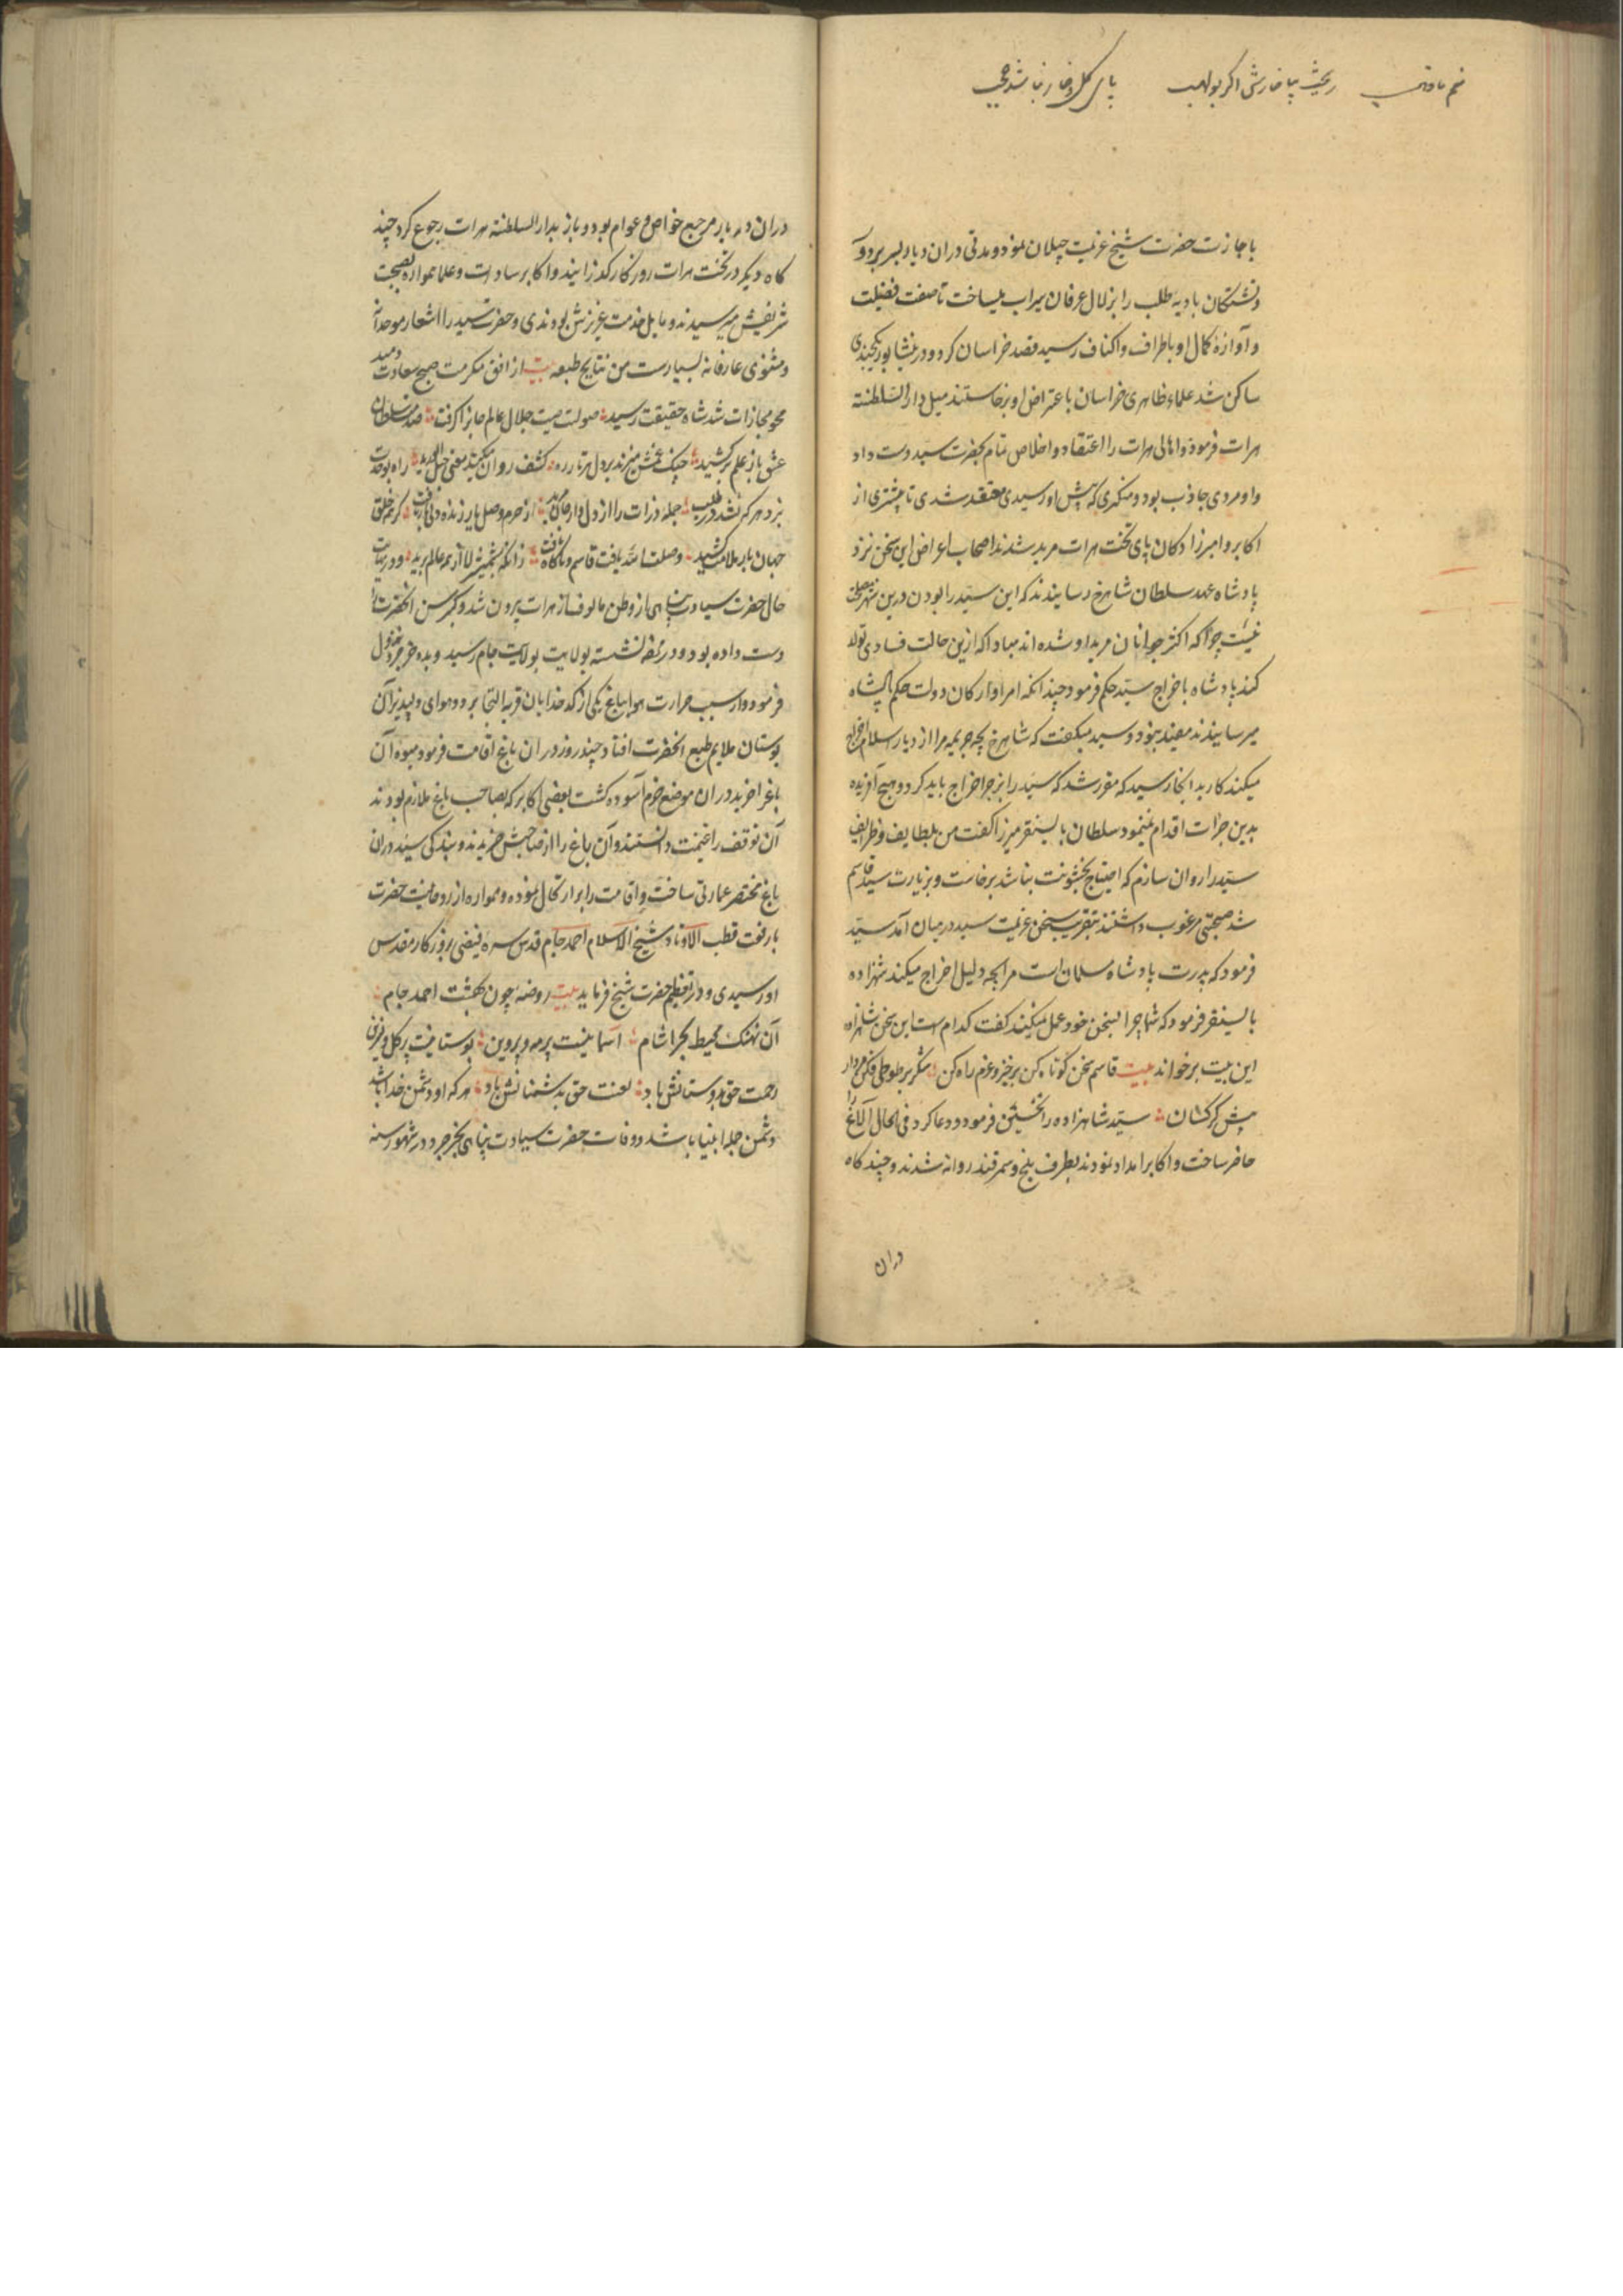 باجازت حضرت شیخ عزیمت جیلان نمود و مدتی دران دیار بسر برد و
تشنگان بادیه طلب را بزلال عرفان سیراب میساخت تا صفت فضیلت
و آوازهٔ کمال او باطراف و اکناف رسید قصد خراسان کرد و در نیشابور یکچندی
ساکن شد علماء ظاهری خراسان باعتراض او برخاستند میل دار السلطنة
هرات فرمود و اهالی هرات را اعتقاد و اخلاص تمام بحضرت سید دست داد
و او مردی جاذب بود و منکری که پیش او رسیدی معتقد شدی تا بیشتری از
اکابر و امیرزادکان پای تخت هرات مرید شدند اصحاب اعراض این سخن نزد
پادشاه عهد سلطان شاهرخ رسانیدند که این سید را بودن درین شهر مصلحت
نیست چرا که اکثر جوانان مرید او شده اند مبادا که ازین حالت فسادی تولد
کند پادشاه باخراج سید حکم فرمود چندانکه امرا و ارکان دولت حکم پادشاه
میرسانیدند مفید نبود و سید میکفت که شاهرخ بچه جریمه مرا از دیار اسلام اخراج
میکند کار بدانجا رسید که مقرر شد که سید را بزجر اخراج باید کرد و هیچ آفریده
بدین جرات اقدام نمینمود سلطان بایسنقر میرزا کفت من بلطایف و ظرایف
سید را روان سازم که احتیاج بخشونت نباشد برخاست و بزیارت سید قاسم
شد صحبتی مرغوب داشتند بتقریب سخن عزیمت سید درمیان آمد سید
فرمود که پدرت پادشاه مسلمان است مرا بچه دلیل اخراج میکند شهزاده
بایسنقر فرمود که شما چرا بسخن خود عمل نمیکنید کفت کدام است این سخن شاهزاده
این بیت برخواند بیت قاسم سخن کوتاه کن برخیز و عزم راه کن شکر بر طوطی فکن مردار
پیش کرکسان سید شاهزاده را تحسین فرمود و دعا کرد فی الحال الاغ
حاضر ساخت و اکابر امداد نمودند بطرف بلخ و سمرقند روانه شدند و چند کاه
دران
دران دیار مرجع خواص و عوام بود و باز بدار السلطنة هرات رجوع کرد چند
کاه دیکر در تخت هرات روزکار کذرانید و اکابر سادات و علما همواره بصحبت
شریفش میرسیدند و مایل خدمت عزیزش بودندی و حضرت سید را اشعار موحدانه
و مثنوی عارفانه بسیارست من نتایج طبعه بیت از افق مکرمت صبح سعادت دمید
محو مجازات شد شاه حقیقت رسید صولت صیت جلال عالم جانرا کرفت صدمه سلطان
عشق باز علم برکشید چنک غمش میزند بر دل هر تار ره کشف روان میکند معنی حبل الورید راه بوحدت
نبرد هر که نشد در طلب جمله ذرات را از دل و از جان مرید از حرم وصل یار زنده دلی بار یافت کز غم خلق
جهان بار ملامت کشید وصلت الله یافت قاسم و ناکاه یافت زانکه بشمشیر لا از همه عالم برید و در نهایت
حال حضرت سیادت پناهی از وطن مالوف از هرات بیرون شد و کبر سن آنحضرت را
دست داده بود و در محفه نشسته بولایت جام رسید و بده خرجرد نزول
فرمود و از سبب حرارت هوا بباغ یکی از کدخدایان قریه التجا برد و هوای دلپذیر آن
بوستان ملایم طبع آنحضرت افتاد چند روز دران باغ اقامت فرمود میوه آن
باغ را خرید دران موضع خرم آسوده کشت بعضی اکابر که بصاحب باغ ملازم بودند
آن توقف را غنیمت دانستند و آن باغ را از صاحبش خریدند و بندکی سید دران
باغ مختصر عمارتی ساخت و اقامت را برارتحال نموده و همواره از روحانیت حضرت
بارفعت قطب الاوتاد شیخ الاسلام احمد جام قدس سره فیضی بروزکار مقدس
او رسیدی و در تعظیم حضرت شیخ فرماید بیت روضه چون بهشت احمد جام
آن نهنک محیط بحر آشام آسمانیست پر مه و پروین بوستانیست پر کل و نسرین
رحمت حق بدوستانش باد لعنت حق بدشمنانش باد هر که او دشمن خدا باشد
دشمن جمله انبیا باشد و وفات حضرت سیادت پناهی بخرجرد در شهور سنه